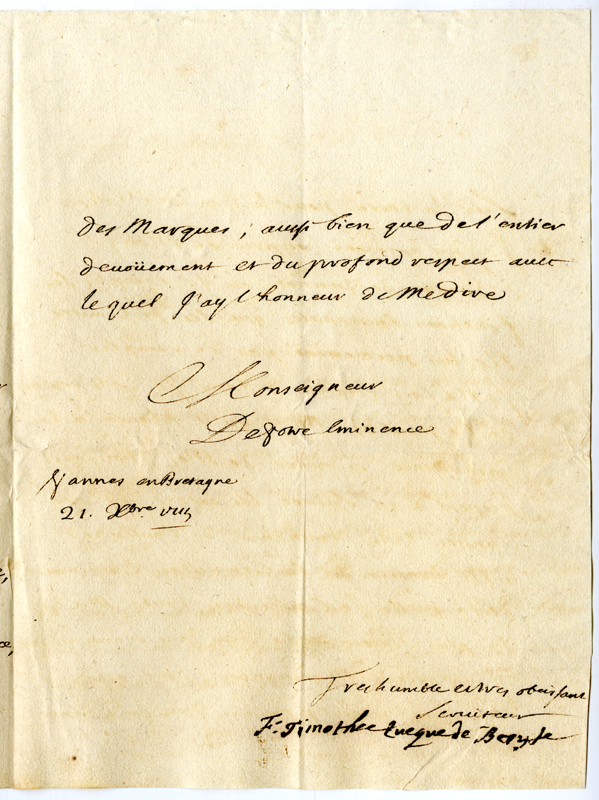 des Marques; aussi bien que de l'entier
devoüement et du profond respect avec
lequel J'ay l'honneur de Me dire
Monseigneur
De Votre Eminence
Vannes en Bretagne
21. Xbre
Tres humble et tres obeissant
Serviteur
F. Timothée Eveque de Beryte